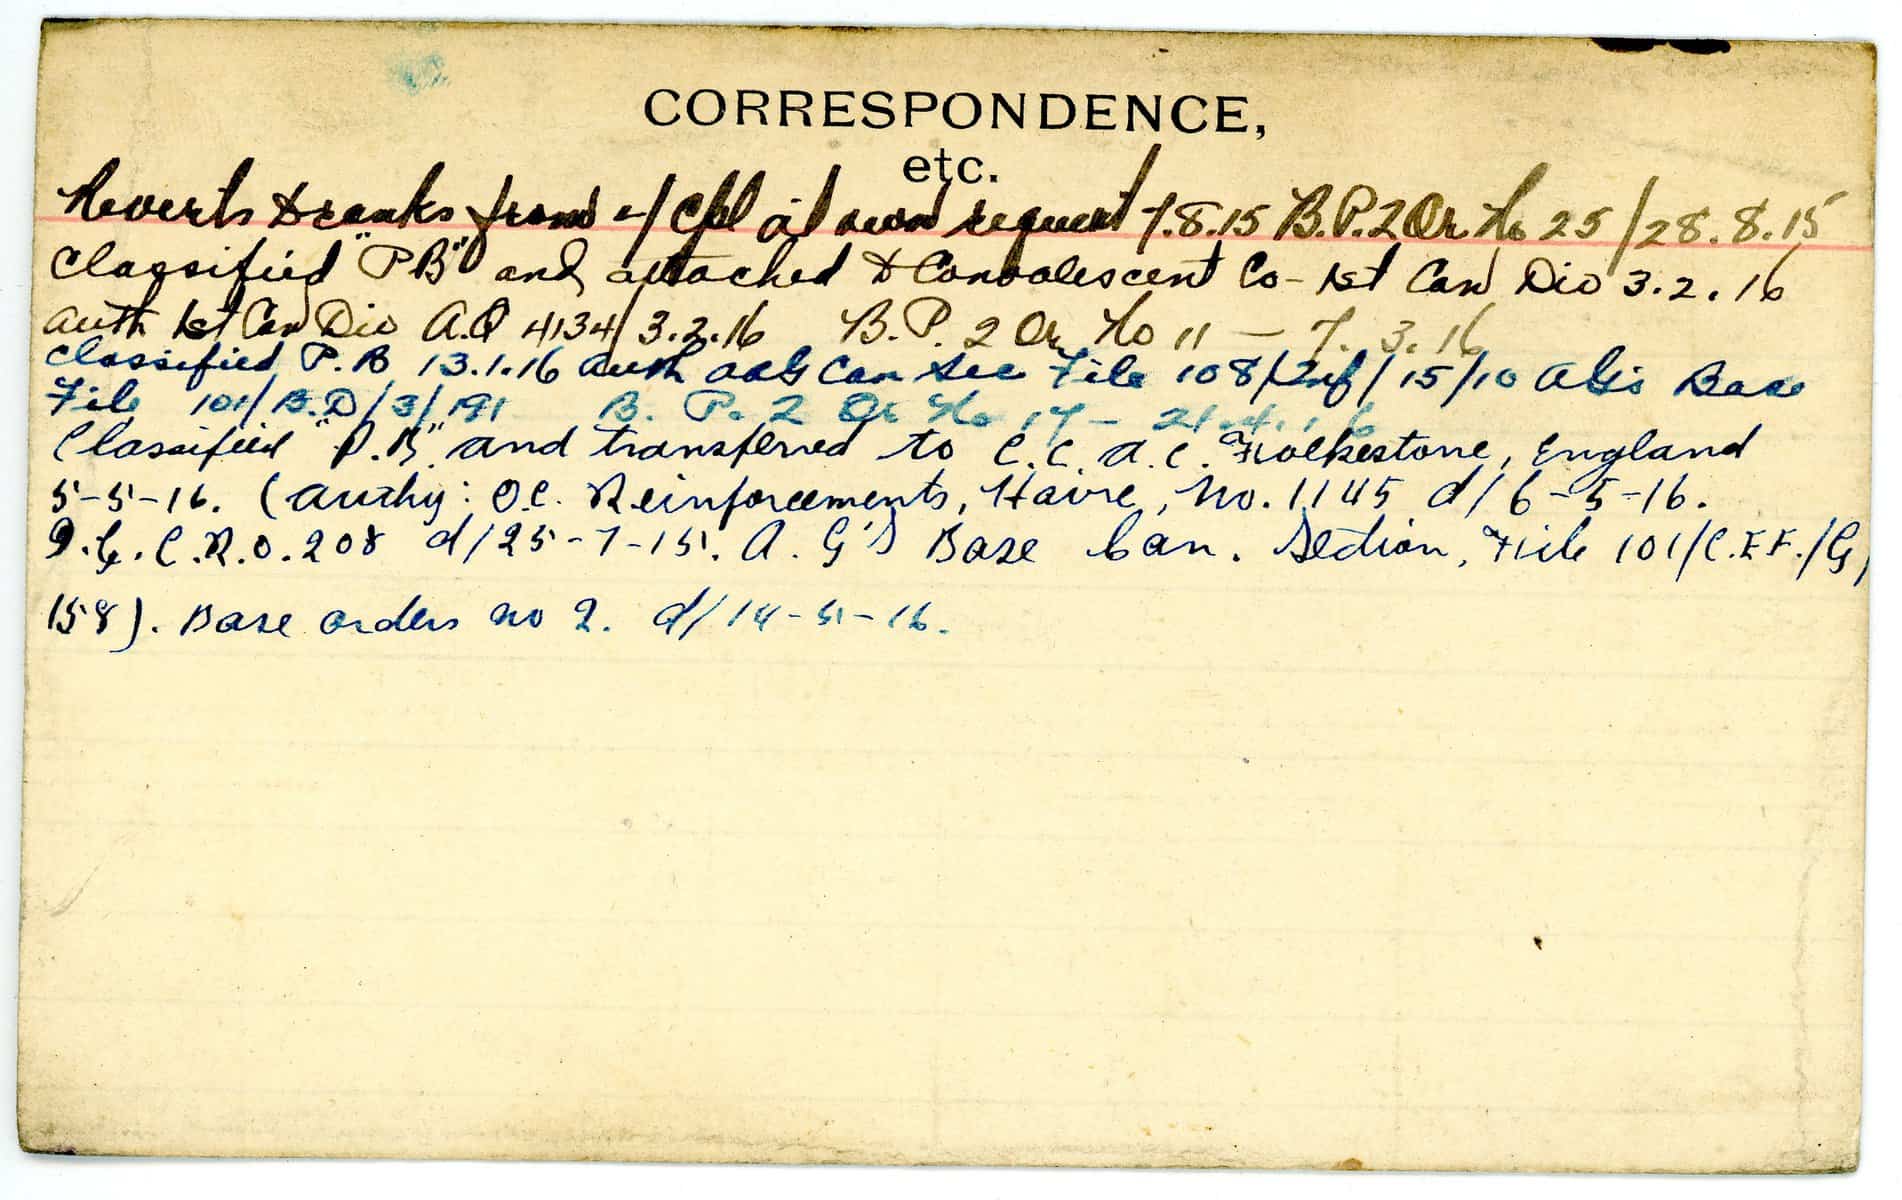 CORRESPONDENCE,
etc.
Reverts to ranks from a/Cpl at own request 7.8.15 B.P.2 Or No 25/28.8.15
Classified "PB" and attached to Convalescent Co - 1st Can Div 3.2.16
Auth 1st Can Div A.Q 4134/3.2.16 B.P. 2 Or No 11 - 7.3.16
Classified P.B 13.1.16 Auth AAG Can Sec File 108/Inf/15/10 AG's Base
File 101/B.D/3/191 B.P. 2 Or No 17 - 21.4.16
Classified "P.B". and transferred to C.C.A.C. Folkestone, England
5-5-16. (Authy: O.C. Reinforcements, Havre, No. 1145 d/6-5-16.
C.R.O. 208 d/25-7-15. A.G'S Base Can. Section, File 101/C.E.F./G/
158). Base orders no 2. d/14-5-16.